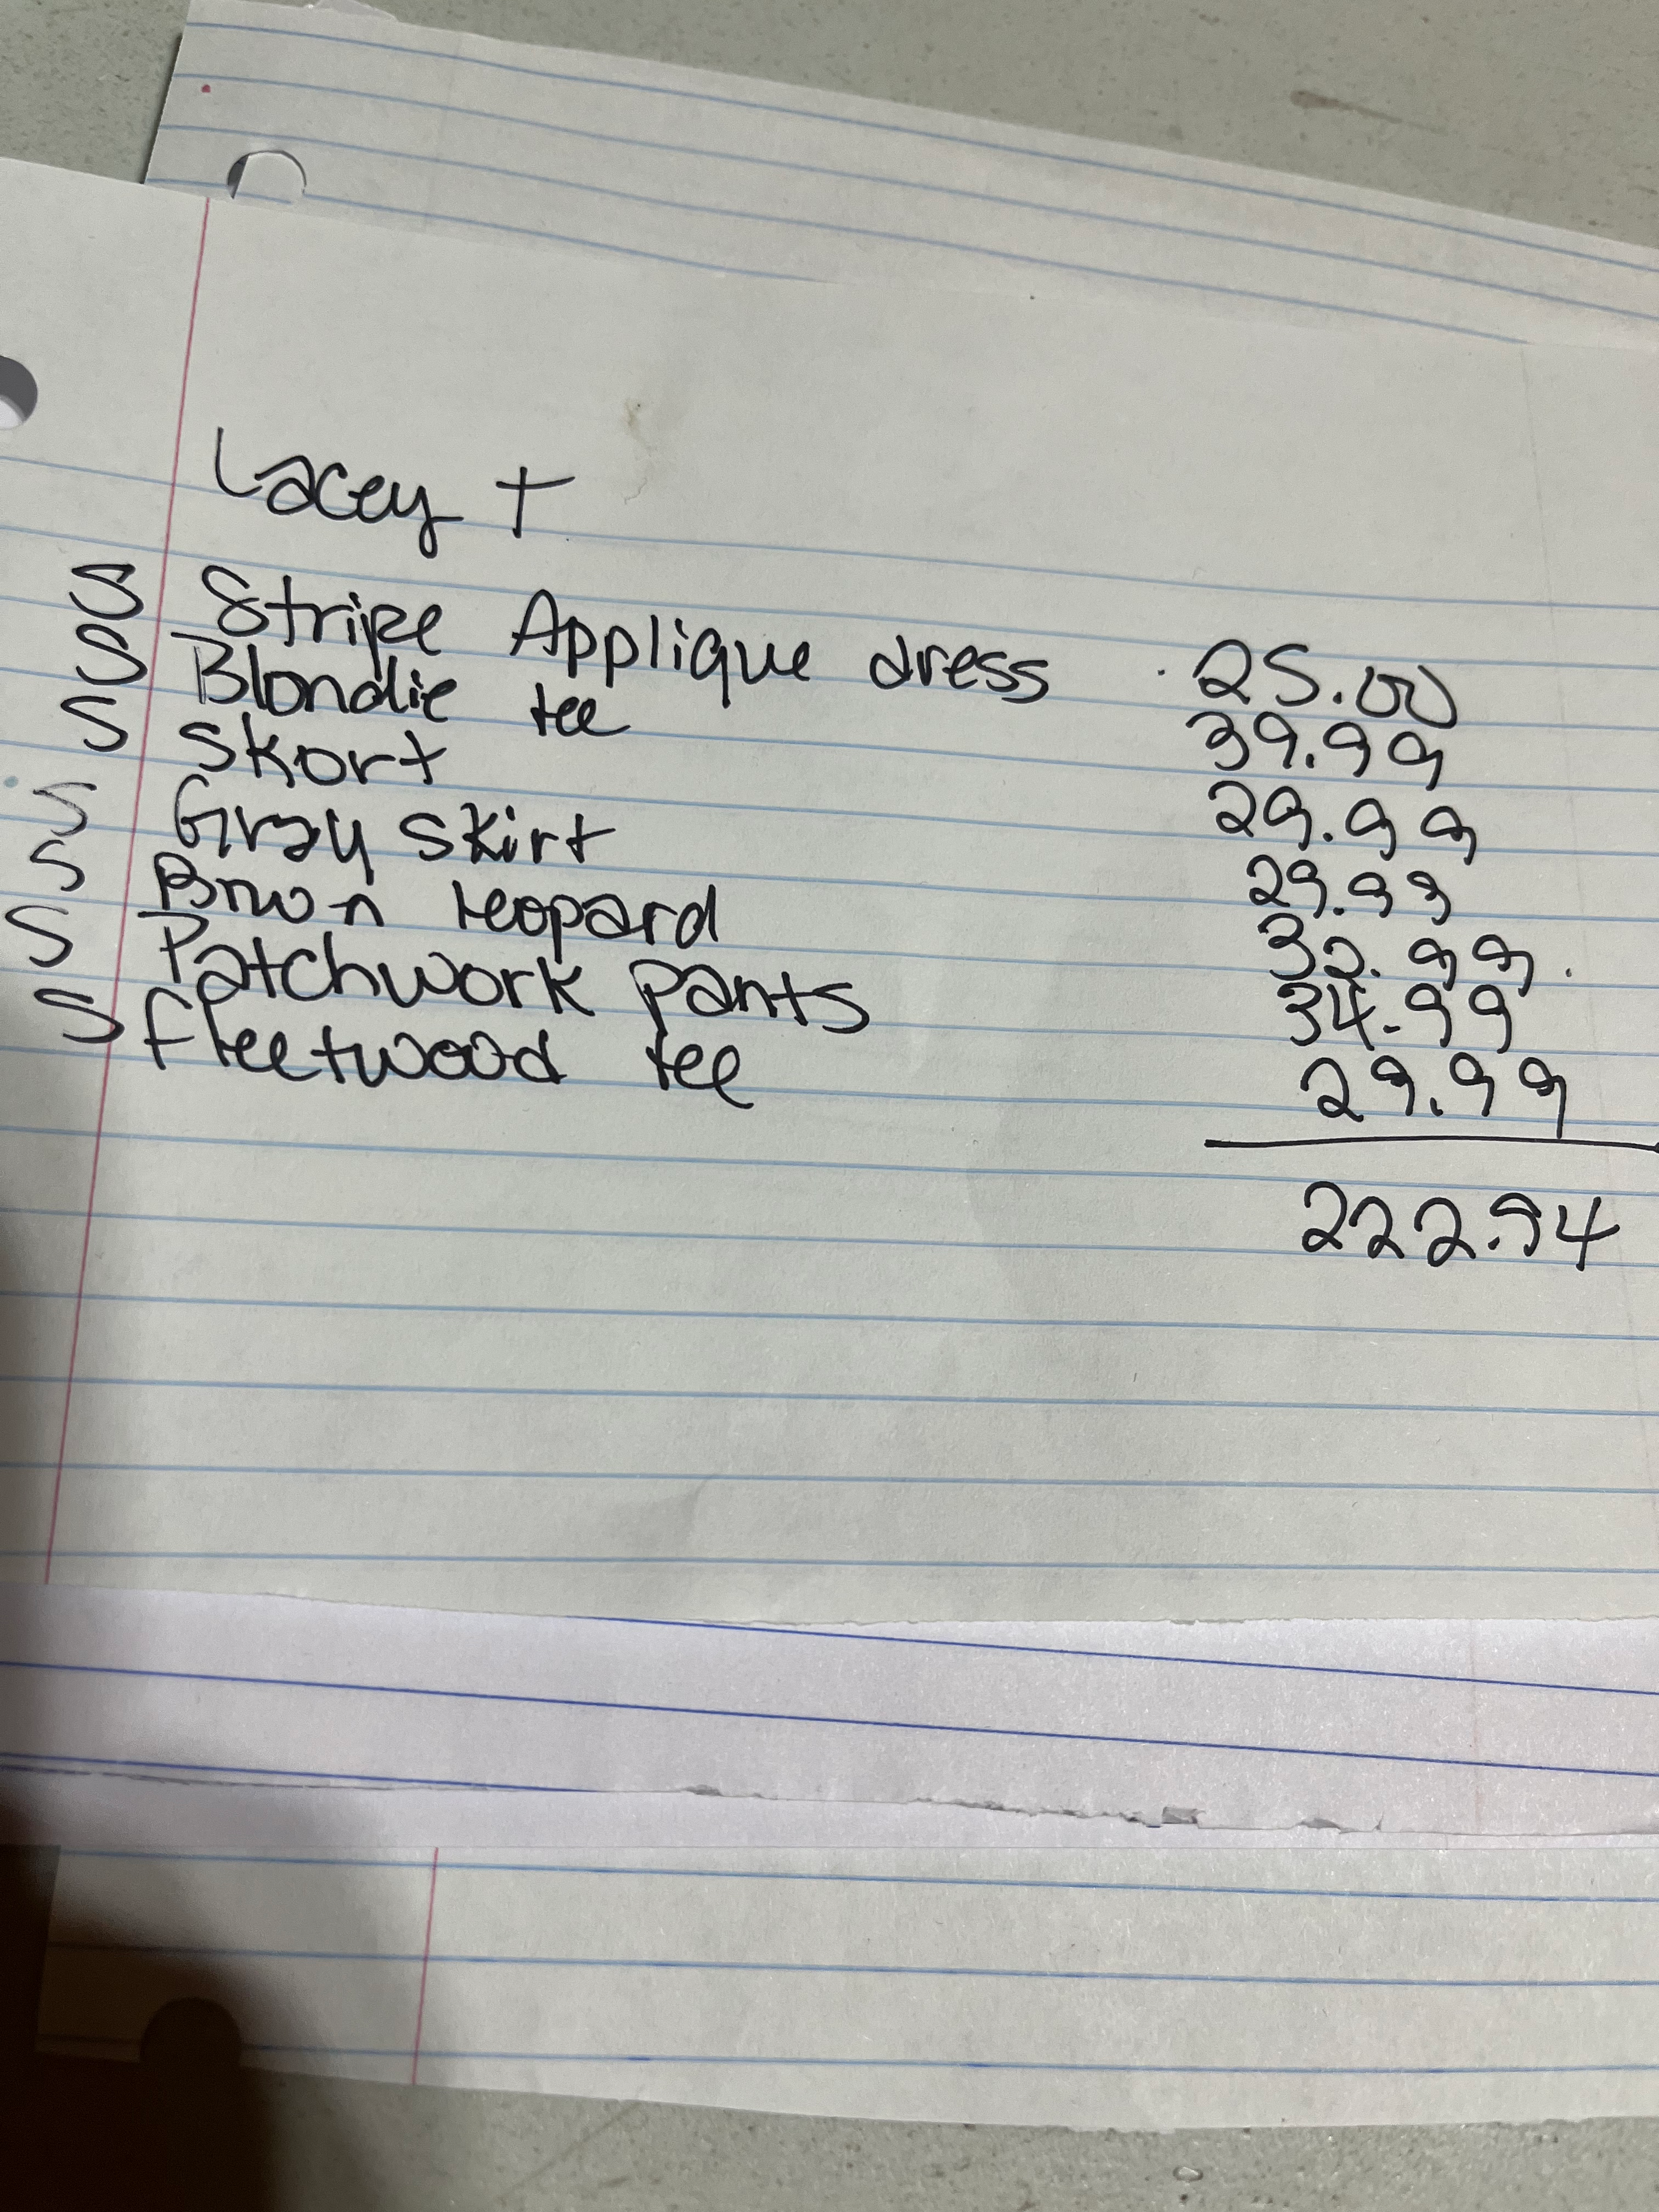 Lacey T
S Stripe Applique dress 25.00
S Blondie tee 39.99
S Skort 29.99
S Gray skirt 29.99
S Brown leopard 32.99
S Patchwork pants 34.99
S fleetwood tee 29.99
222.94